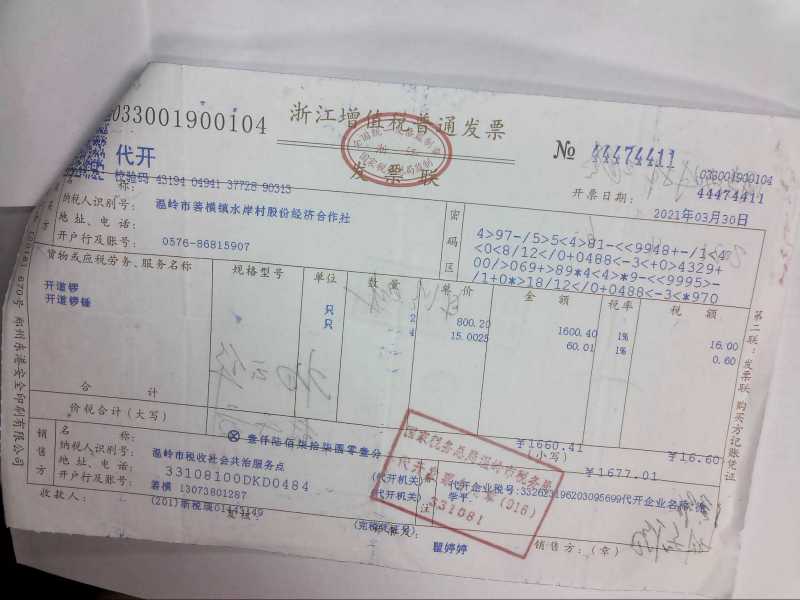 033001900104
浙江增值税普通发票
发票联
№ 44474411
033001900104
44474411
代开
校验码 43194 04941 37728 90313
开票日期: 2021年03月30日
称:
纳税人识别号:
温岭市箬横镇水岸村股份经济合作社
地址、电话:
0576-86815907
开户行及账号:
密码区
4>97-/5>5<4>81-<<9948+-/1<4
<0<8/12</0+0488<-3<+0>4329+
00/>069+>89*4<4>*9-<<9995>-
/1+0*>18/12</0+0488<-3<*970
货物或应税劳务、服务名称 规格型号 单位 数量 单价 金额 税率 税额
开道锣 只 2 800.20 1600.40 1% 16.00
开道锣锤 只 4 15.0025 60.01 1% 0.60
合计 ¥1660.41 ¥16.60
价税合计(大写) ⊗壹仟陆佰柒拾柒圆零壹分 (小写) ¥1677.01
销售方
名称:
温岭市税收社会共治服务点 (代开机关)
纳税人识别号:
33108100DKD0484 (代开机关)
地址、电话:
箬横 13073801287
开户行及账号:
(完税凭证号)
备注
学平
收款人:
复核:
瞿婷婷
销售方:(章)
国家税务总局温岭市税务局
331081
第二联:发票联 购买方记账凭证
郑州东港安全印刷有限公司